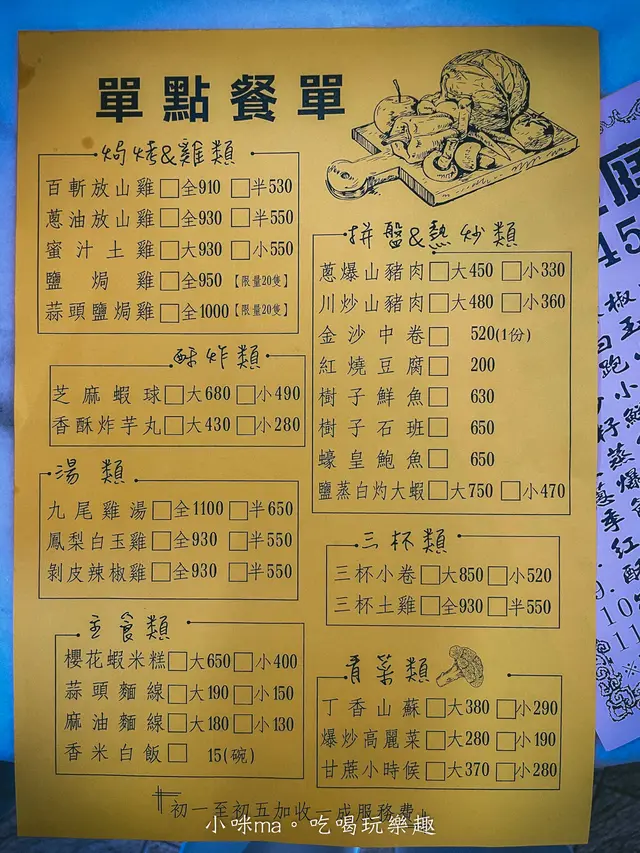 單點餐單
焗烤&雞類
百斬放山雞□全910 □半530
蔥油放山雞□全930 □半550
蜜汁土雞□大930 □小550
鹽焗雞□全950【限量20隻】
蒜頭鹽焗雞□全1000【限量20隻】
酥炸類
芝麻蝦球□大680 □小490
香酥炸芋丸□大430 □小280
湯類
九尾雞湯□全1100 □半650
鳳梨白玉雞□全930 □半550
剝皮辣椒雞□全930 □半550
主食類
櫻花蝦米糕□大650 □小400
蒜頭麵線□大190 □小150
麻油麵線□大180 □小130
香米白飯□ 15(碗)
拼盤&熱炒類
蔥爆山豬肉□大450 □小330
川炒山豬肉□大480 □小360
金沙中卷□ 520(1份)
紅燒豆腐□ 200
樹子鮮魚□ 630
樹子石班□ 650
蠔皇鮑魚□ 650
鹽蒸白灼大蝦□大750 □小470
三杯類
三杯小卷□大850 □小520
三杯土雞□全930 □半550
青菜類
丁香山蘇□大380 □小290
爆炒高麗菜□大280 □小190
甘蔗小時候□大370 □小280
初一至初五加收一成服務費
小咪ma。吃喝玩樂趣